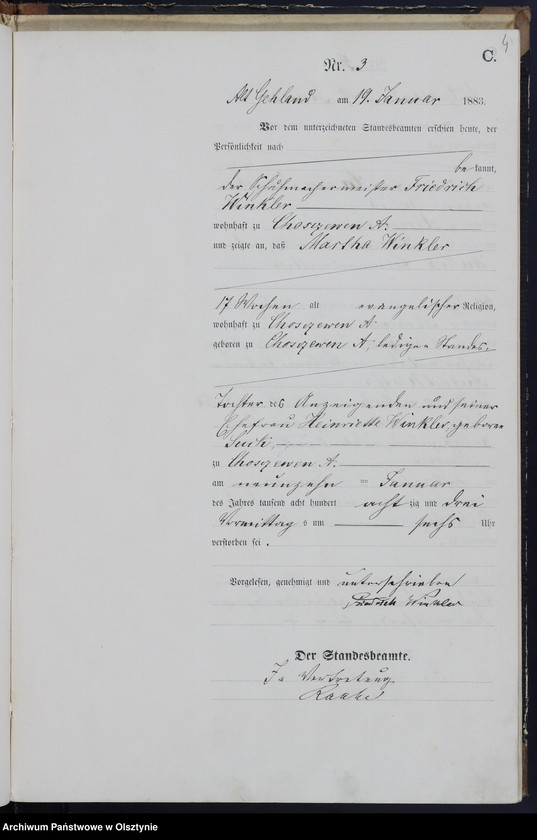 4
C.
Nr. 3
Alt Gehland am 19. Januar 1883.
Vor dem unterzeichneten Standesbeamten erschien heute, der
Persönlichkeit nach
bekannt,
der Schuhmachermeister Friedrich
Winkler
wohnhaft zu Choszewen A.
und zeigte an, daß Martha Winkler
17 Wochen alt evangelischer Religion,
wohnhaft zu Choszewen A.
geboren zu Choszewen A, ledigen Standes,
Tochter des Anzeigenden und seiner
Ehefrau Heinriette Winkler, geborene
zu Choszewen A.
am neunzehn ten Januar
des Jahres tausend acht hundert acht zig und drei
Vormittag s um sechs Uhr
verstorben sei.
Vorgelesen, genehmigt und unterschrieben
Friedrich Winkler
Der Standesbeamte.
In Vertretung
Archiwum Państwowe w Olsztynie